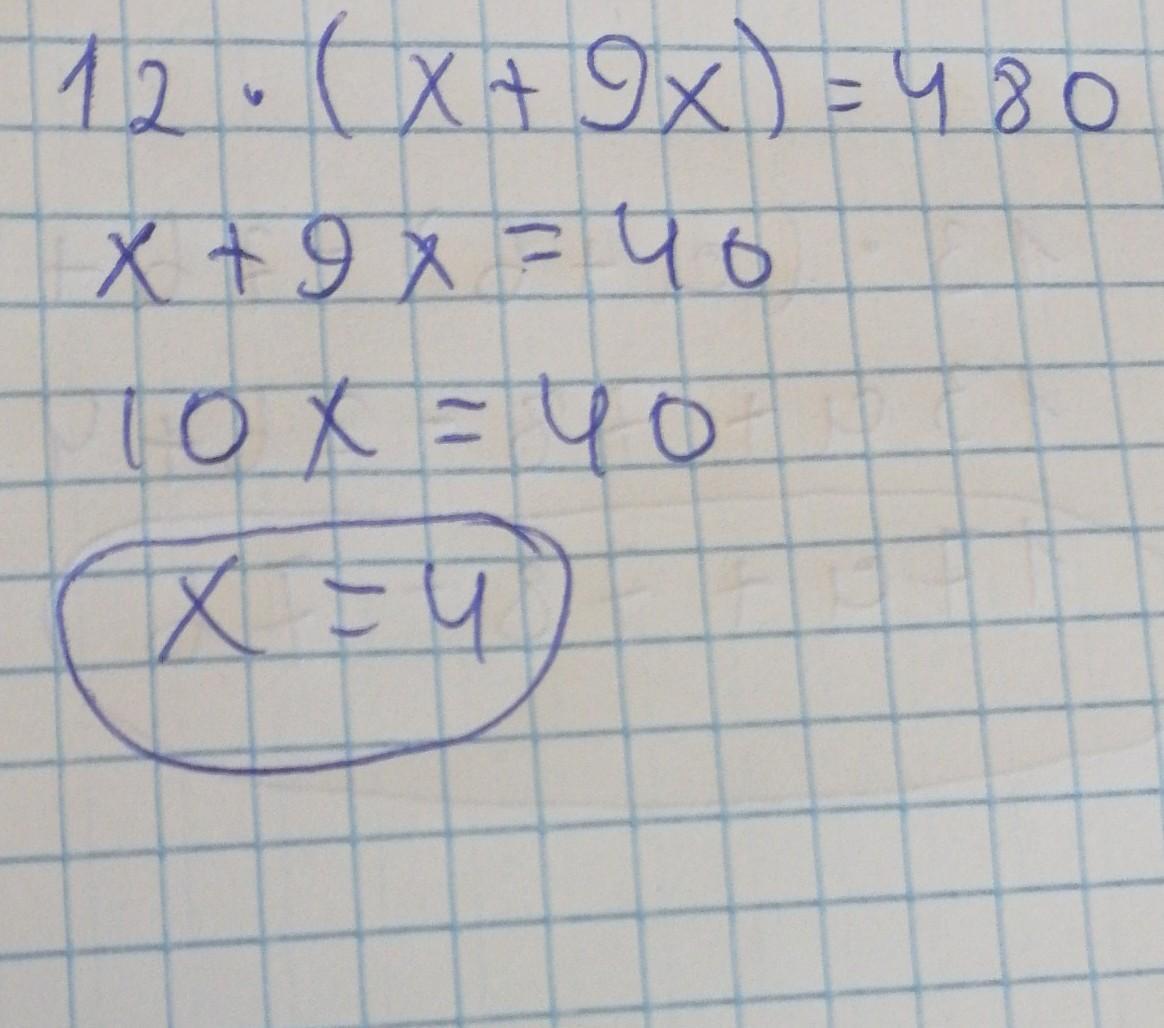 12 · (x + 9x) = 480
x + 9x = 40
10x = 40
x = 4